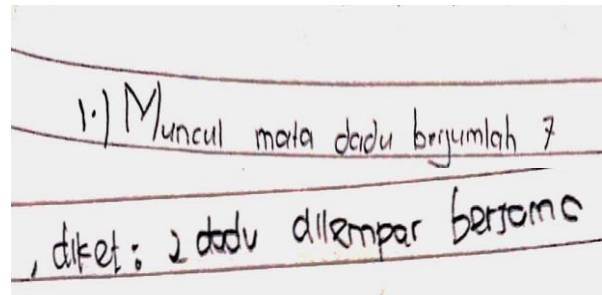 1.) Muncul mata dadu berjumlah 7
, diket : 2 dadu dilempar bersama